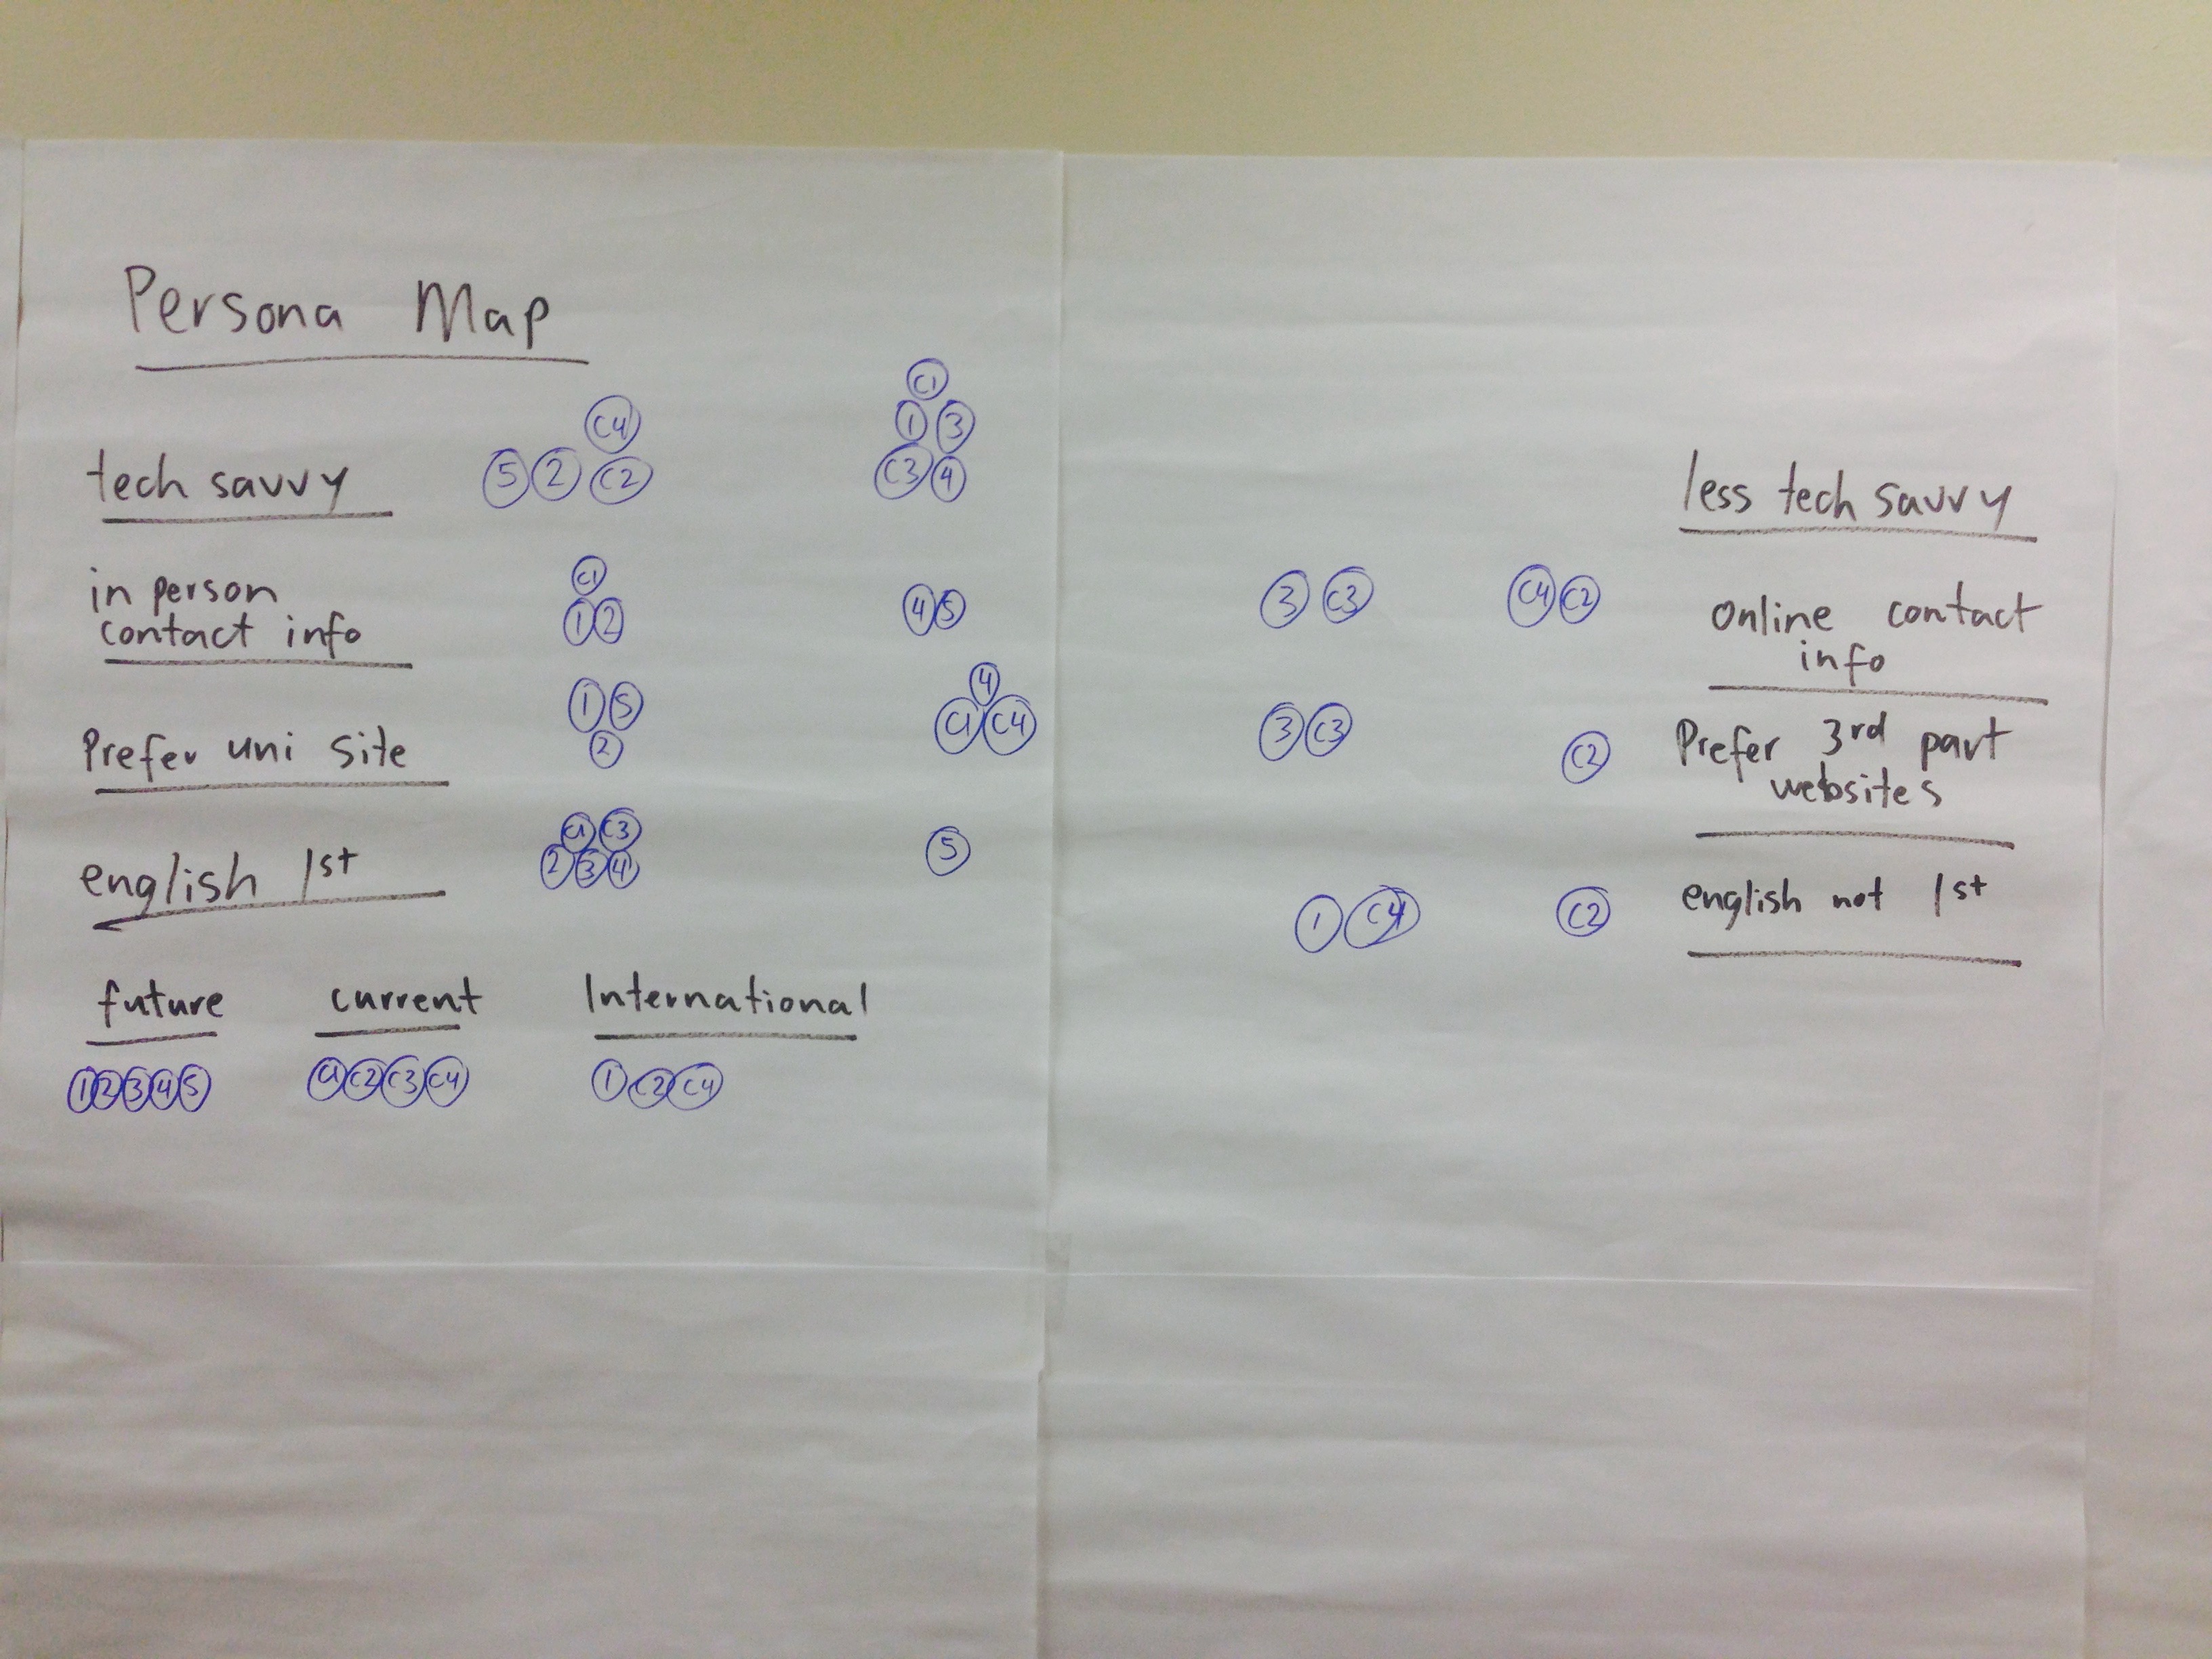 Persona Map
C1
C4 1 3
tech savvy 5 2 C2 C3 4 less tech savvy
C1
in person
contact info 1 2 4 5 3 C3 C4 C2 online contact
info
1 5 4
Prefer uni site 2 C1 C4 3 C3 C2 Prefer 3rd part
websites
C1 C3
english 1st 2 3 4 5 1 C4 C2 english not 1st
future current International
1 2 3 4 5 C1 C2 C3 C4 1 C2 C4